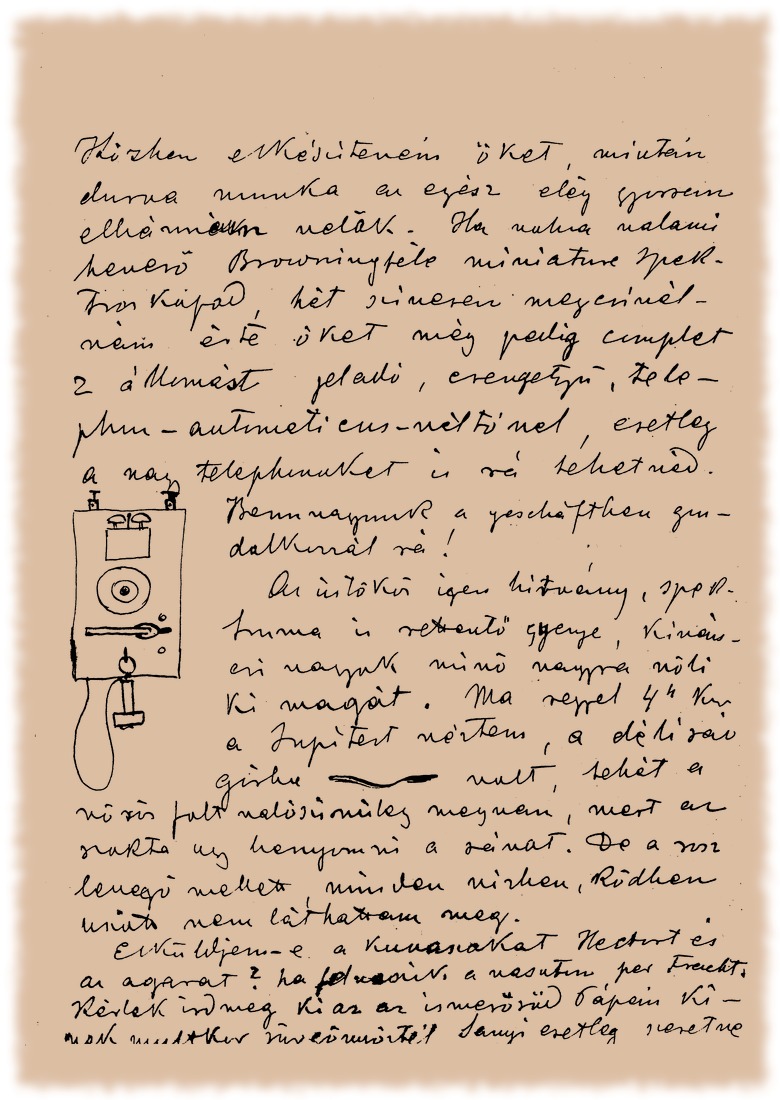 közben elkészíteném őket, miután
durva munka az egész elég gyorsan
elbánnám velök. Ha volna valami
heverő Browningféle miniature spek-
troskópod, hét szinesen megcsinál-
nám érte őket még pedig complet
2 állomást jeladó, csengetyü, tele-
phon-automaticus-váltóval, esetleg
a nagy telephonoket is rá tehetnéd.
Benn vagyunk a geschäftben gon-
dolkozzál rá!
Az üstökös igen hitvány, spek-
truma is rettentő gyenge, kiván-
csi vagyok minő nagyra növi
ki magát. Ma reggel 4h kor
a Jupitert néztem, a déli sáv
görbe volt, tehát a
vörös folt valószinüleg megvan, mert az
szokta ugy benyomni a sávot. De a rossz
levegő mellett, minden vizben, ködben
uszott nem láthattam meg.
Elküldjem-e a kuvaszokat Hectort és
az agarat? ha a vasuton per Fracht.
Kérlek ird meg ki az az ismerősöd Pápán ki-
nek Sanyi esetleg szeretne